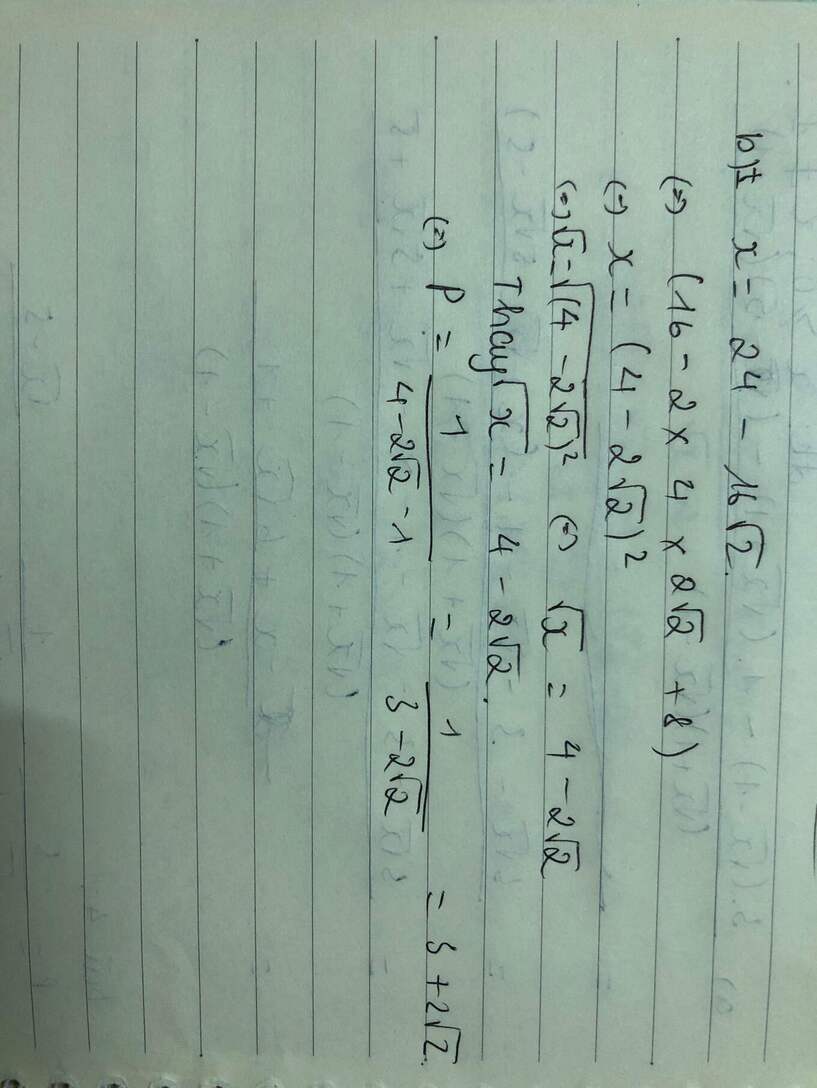 b) x = 24 - 16√2.
(=) (16 - 2 × 4 × 2√2 + 8)
(=) x = (4 - 2√2)²
(=) √x = √(4 - 2√2)² (=) √x = 4 - 2√2
Thay √x = 4 - 2√2.
(=) P = 1/(4 - 2√2 - 1) = 1/(3 - 2√2) = 3 + 2√2.